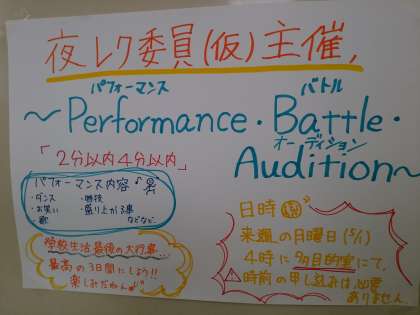 夜レク委員(仮)主催,
パフォーマンス バトル
～Performance・Battle・
オーディション
Audition～
「2分以内4分以内」
パフォーマンス内容
・ダンス ・特技
・お笑い ・盛り上がる事
・歌 などなど
学校生活最後の大行事…
最高の3日間にしよう!!
楽しみだねん
日時
来週の月曜日(5/1)
4時に多目的室にて。
⚠時前の申し込みは必要
ありません。